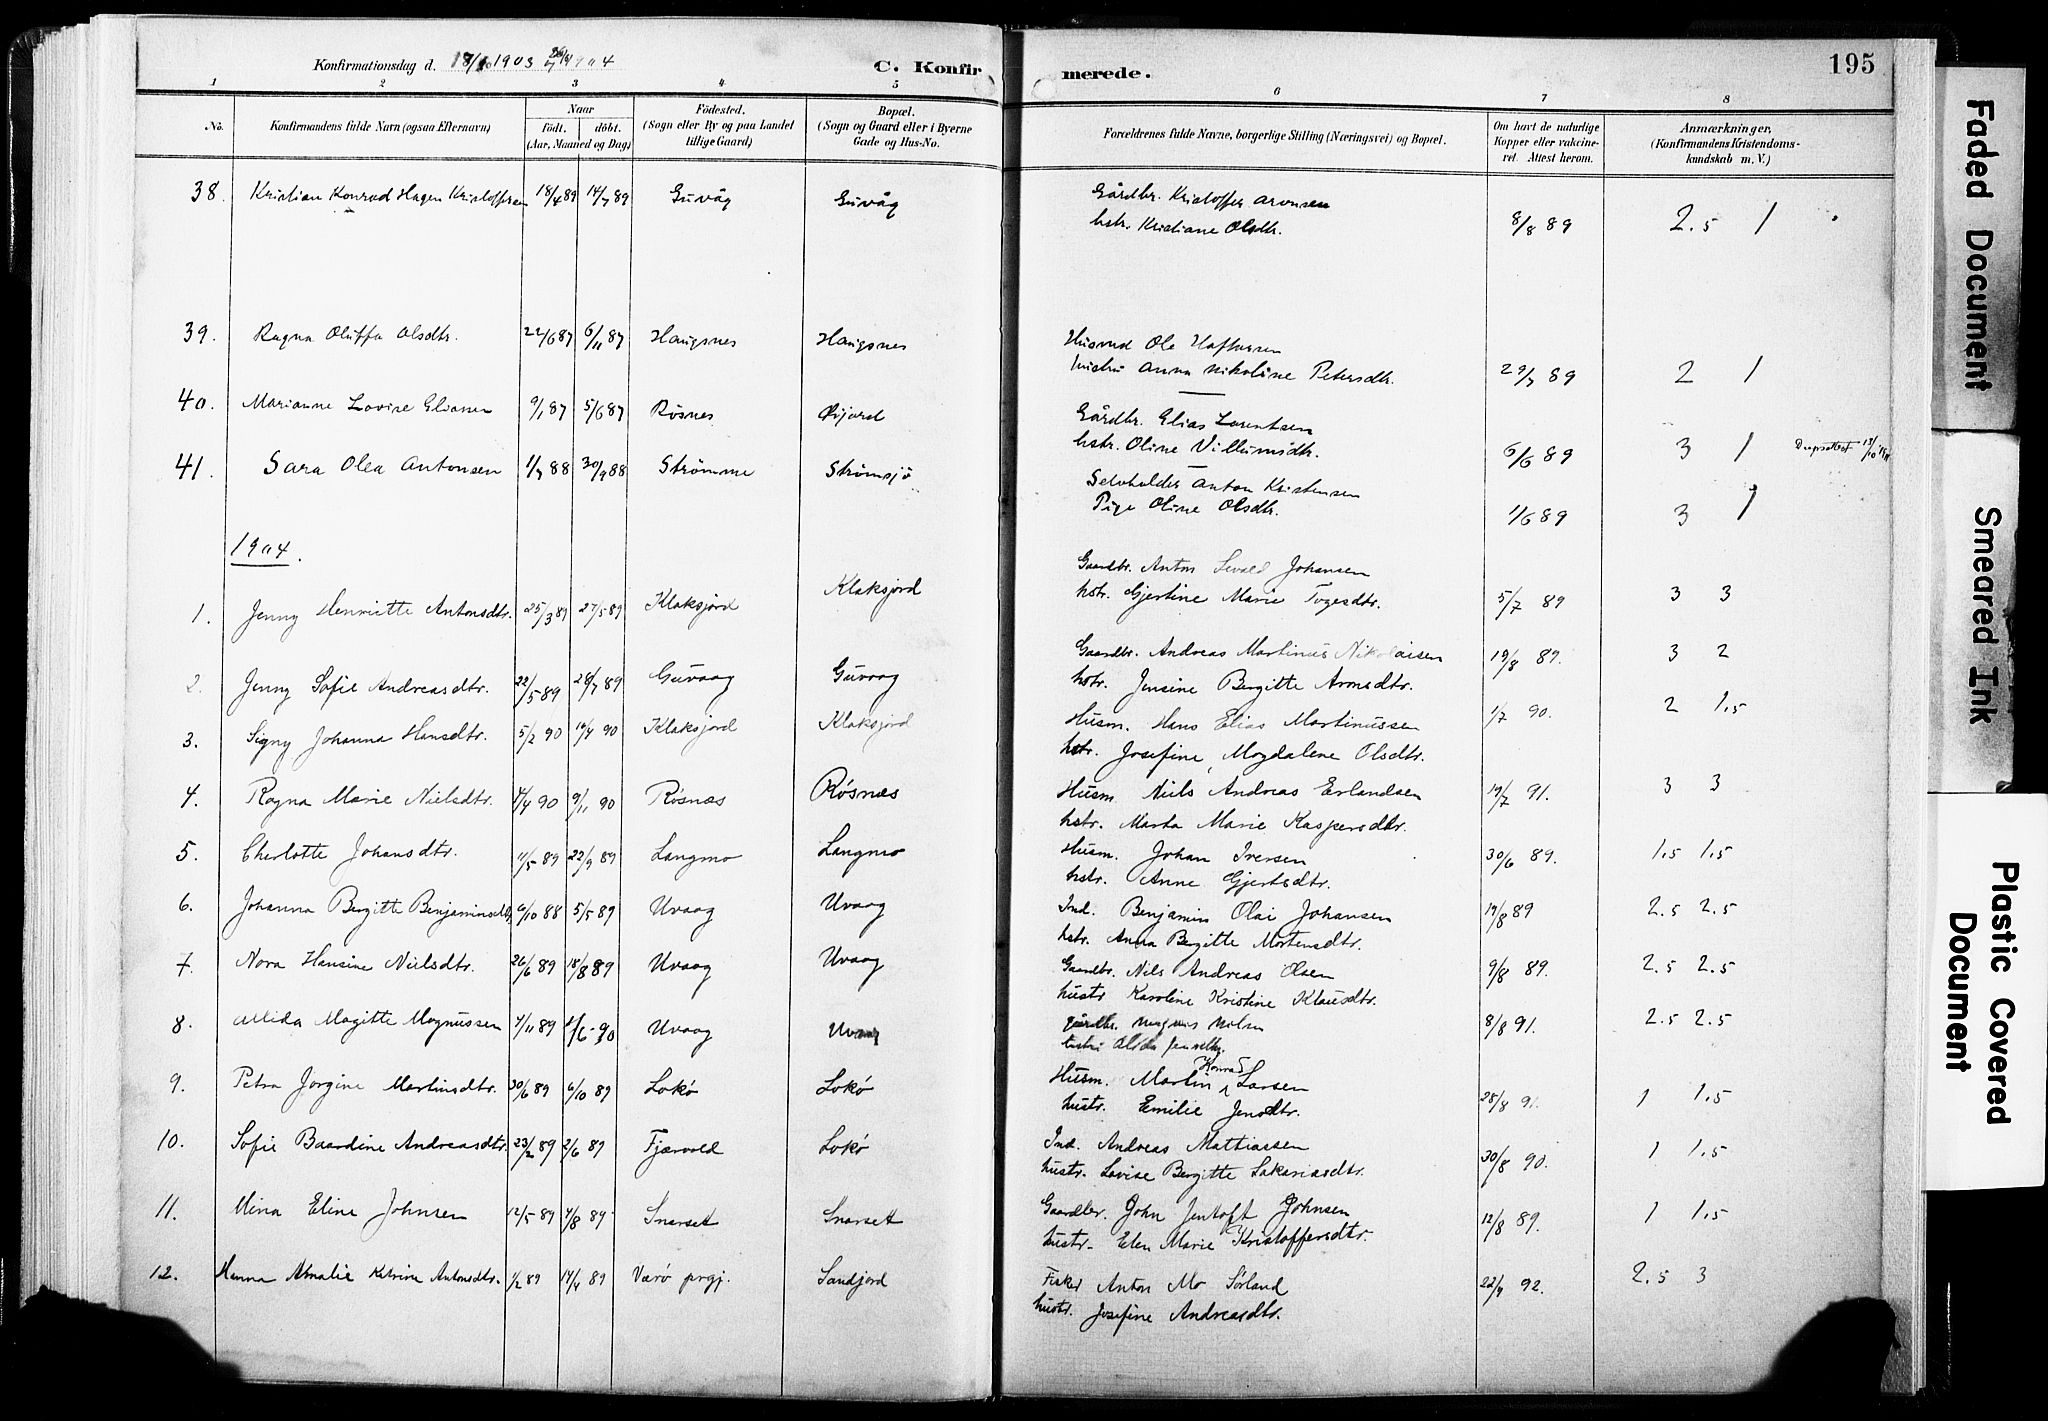 Konfirmationsdag d. 18/10 1903 1904 C. Konfirmerede. 195
1 2 3 4 5 6 7 8
No. Konfirmandens fulde Navn (ogsaa Efternavn) Naar födt. döbt. (Aar, Maaned og Dag) Födested. (Sogn eller By og paa Landet tillige Gaard) Bopæl. (Sogn og Gaard eller i Byerne Gade og Hus-No. Forældrenes fulde Navne, borgerlige Stilling (Næringsvei) og Bopæl. Om havt de naturlige Kopper eller vakcineret. Attest herom. Anmærkninger, (Konfirmandens Kristendomskundskab m. V.)
38. Kristian Konrad Hagen Kristoffersen 18/4 89 14/7 89 Guvåg Guvåg Gårdbr. Kristoffer Aronsen
hstr. Kristiane Olsdtr. 8/8 89 2.5 1
39. Ragna Oluffa Olsdtr. 22/6 87 6/11 87 Haugsnes Haugsnes Husmd Ole
hustru Anna Nikoline Petersdtr. 29/7 89 2 1
40. Marianne Lovise Eliasen 9/1 87 5/6 87 Røsnes Øijord Gårdbr. Elias Lorentsen
hstr. Oline Villumsdtr. 6/6 89 3 1
41. Sara Olea Antonsen 1/7 88 30/9 88 Strømme Strømsjø Selvholder Anton Kristensen
Pige Oline Olsdtr. 1/6 89 3 1
1904.
1. Jenny Henriette Antonsdtr. 25/3 89 27/5 89 Klaksjord Klaksjord Gaardbr. Anton Sevald Johansen
hstr. Gjertine Marie Togesdtr. 5/7 89 3 3
2. Jenny Sofie Andreasdtr. 22/5 89 28/7 89 Guvaag Guvaag Gaardbr. Andreas Martinus Nikolaisen 19/8 89. 3 2
hstr. Jensine Bergitte Aronsdtr.
3. Signy Johanna Hansdtr. 5/2 90 90 Klaksjord Klaksjord Husm. Hans Elias Martinussen 1/7 90. 2 1,5
hstr. Josefine Magdalene Olsdtr.
4. Ragna Marie Nielsdtr. 4/4 90 9/11 90 Røsnæs Røsnæs Husm. Niels Andreas Erlandsen 19/7 91. 3 3
hstr. Marta Marie Kaspersdtr.
5. Charlotte Johansdtr. 11/5 89 22/9 89 Langmo Langmo Husm. Johan Iversen 30/6 89. 1,5 1,5
hstr. Anne Gjertsdtr.
6. Johanna Bergitte Benjaminsdtr. 6/10 88 5/5 89 Uvaag Uvaag Ind. Benjamin Olai Johansen 19/8 89 2.5 2.5
hstr. Anna Bergitte Mortensdtr.
7. Nora Hansine Nielsdtr. 26/6 89 18/8 89 Uvaag Uvaag Gaardbr. Nils Andreas Olsen 9/8 89. 2.5 2.5
hustr Karoline Kristine Klausdtr.
8. Alida Magitte Magnussen 4/11 89 90 Uvaag Uvaag gårdbr. Magnus Nilsen 8/8 91. 2.5 2.5
hustru Alida
9. Petra Jørgine Martinsdtr. 30/6 89 6/10 89 Lokø Lokø Husm. Martin Konrad Larsen
hustr. Emilie Jensdtr. 28/8 91. 1 1,5
10. Sofie Baardine Andreasdtr. 23/2 89 2/6 89 Fjærvold Lokø Ind. Andreas Mattiassen
hustr. Lovise Bergitte Sakariasdtr. 30/8 90. 1 1,5
11. Mina Eline Johnsen 12/5 89 4/8 89 Snarset Snarset Gaardbr. John Jentoft Johnsen
hustr. Elen Marie Kristoffersdtr. 12/8 89. 1 1,5
12. Hanna Amalie Katrine Antonsdtr. 1/2 89 14/4 89 Værø prgj. Sandjord Fisker Anton Mo Sørland 22/7 92. 2.5 3
hustr. Josefine Andreasdtr.
Faded Document
Smeared Ink
Plastic Covered Document